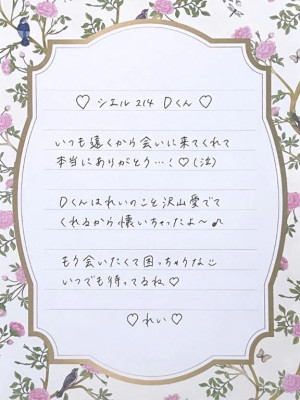 ♡ シエル 214 Dくん ♡
いつも遠くから会いに来てくれて
本当にありがとう…!♡(泣)
Dくんはれいのこと沢山愛でて
くれるから懐いちゃったよ〜♪
もう会いたくて困っちゃうな
いつでも待ってるね♡
♡れい♡